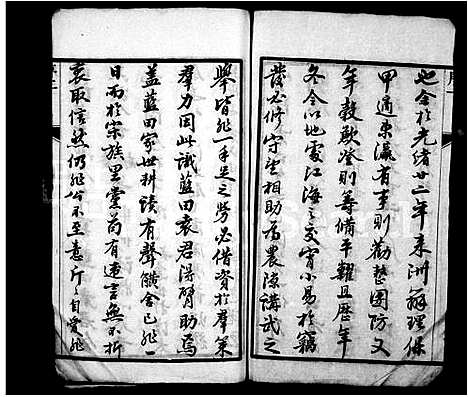 也余於光緒廿二年来洲辦理保
甲適東瀛有事則勸整團防又
年穀歉登則籌備平糶且歷年
冬令以地處江海之交宵小易於竊
發必修守望相助為農隙講武之
舉皆非一手足之勞必借資於羣策
羣力因此識藍田袁君得臂助焉
蓋藍田家世耕讀有聲黌舍已非一
日而於宗族里黨苟有違言無不折
衷取信然仍非公不至意斤斤自愛非